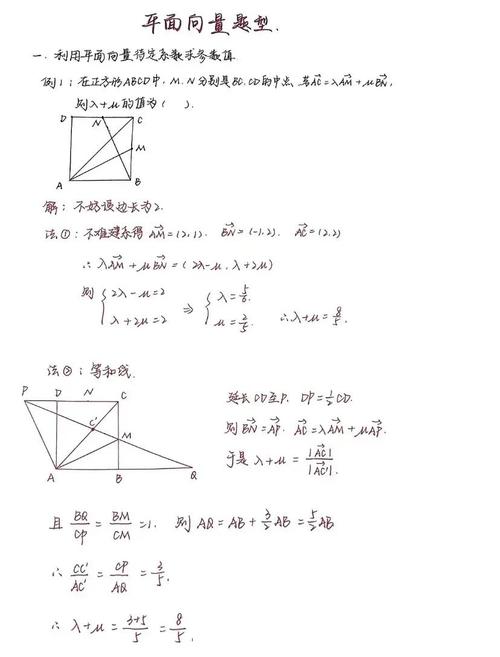 平面向量题型.
一. 利用平面向量待定系数求参数值.
例1: 在正方形ABCD中, M, N分别是BC, CD的中点, 若$\overrightarrow{AC}=\lambda\overrightarrow{AM}+\mu\overrightarrow{BN}$,
则λ+μ的值为( ).
D N C
M
A B
解: 不妨设边长为2.
法①: 不难建系得 $\overrightarrow{AM}=(2,1)$. $\overrightarrow{BN}=(-1,2)$. $\overrightarrow{AC}=(2,2)$
∴ $\lambda\overrightarrow{AM}+\mu\overrightarrow{BN}=(2\lambda-\mu, \lambda+2\mu)$
则 $\begin{cases}2\lambda-\mu=2\\ \lambda+2\mu=2\end{cases}$ ⇒ $\begin{cases}\lambda=\frac{6}{5}.\\ \mu=\frac{2}{5}.\end{cases}$ ∴λ+μ=$\frac{8}{5}$.
法②: 等和线.
P D N C
C'
M
A B Q
延长CD至P, DP=$\frac{1}{2}$CD.
则$\overrightarrow{BN}=\overrightarrow{AP}$. $\overrightarrow{AC}=\lambda\overrightarrow{AM}+\mu\overrightarrow{AP}$.
于是 λ+μ=$\frac{|\overrightarrow{AC}|}{|\overrightarrow{AC'}|}$.
且 $\frac{BQ}{CP}=\frac{BM}{CM}=1$. 则 AQ=AB+$\frac{3}{2}$AB=$\frac{5}{2}$AB
∴ $\frac{CC'}{AC'}=\frac{CP}{AQ}=\frac{3}{5}$.
∴ λ+μ=$\frac{3+5}{5}$=$\frac{8}{5}$.